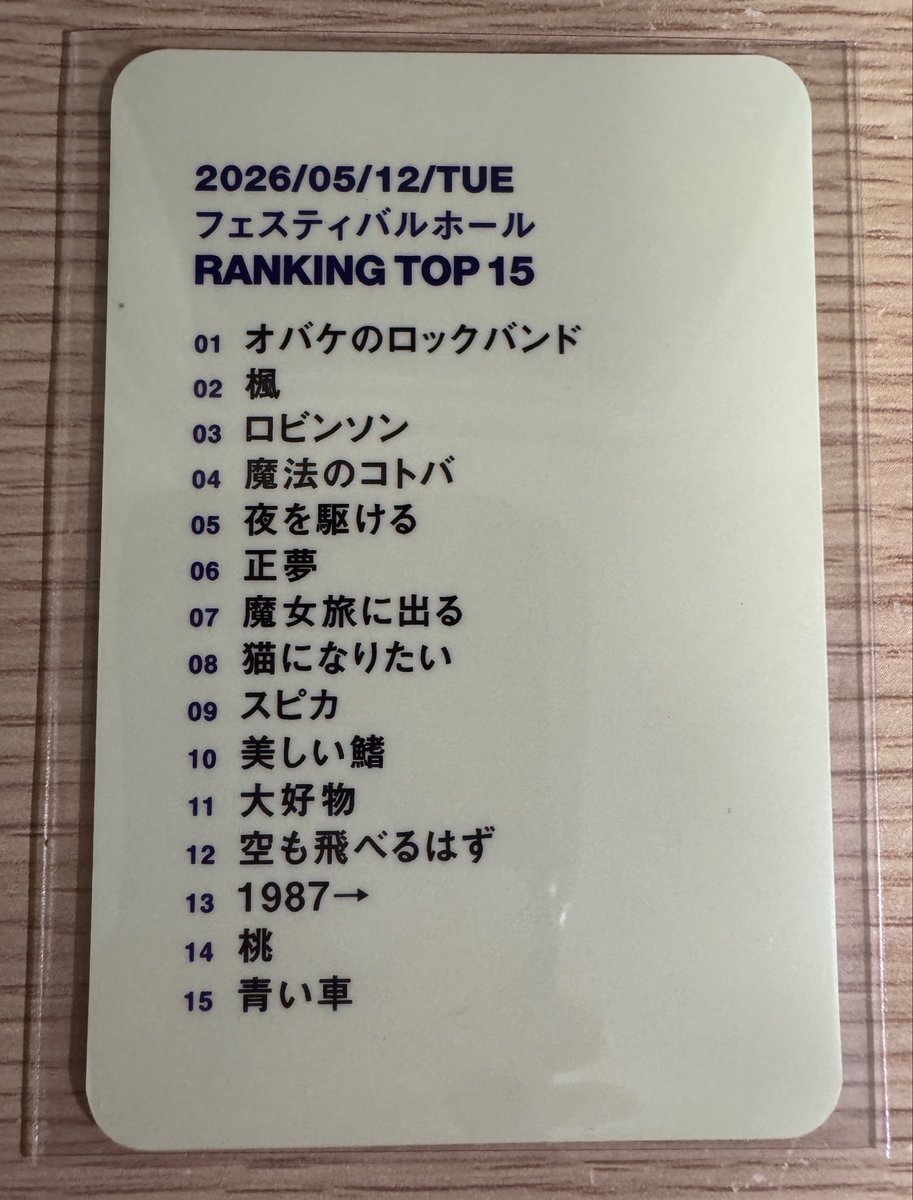 2026/05/12/TUE
フェスティバルホール
RANKING TOP 15
01 オバケのロックバンド
02 楓
03 ロビンソン
04 魔法のコトバ
05 夜を駆ける
06 正夢
07 魔女旅に出る
08 猫になりたい
09 スピカ
10 美しい鰭
11 大好物
12 空も飛べるはず
13 1987→
14 桃
15 青い車